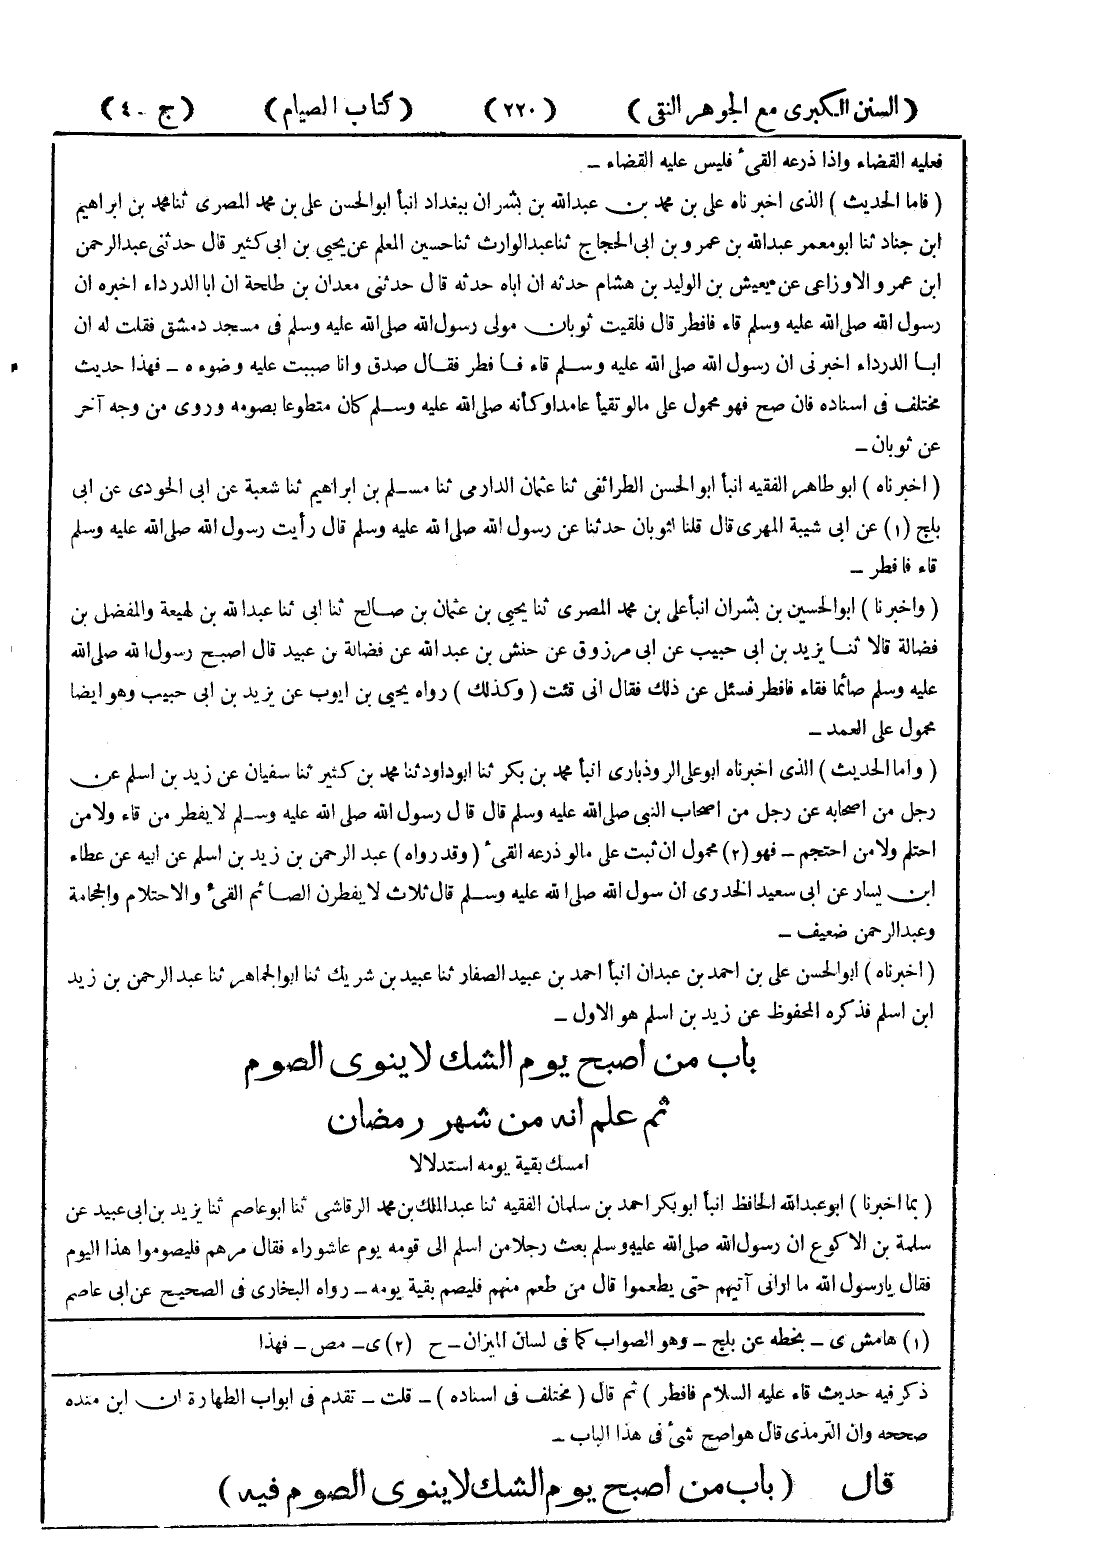 ( السنن الكبرى مع الجوهر النقى ) ( ٢٢٠ ) ( كتاب الصيام ) ( ج - ٤ )
فعليه القضاء واذا ذرعه القىٔ فليس عليه القضاء ــ
( فاما الحديث ) الذى اخبرناه على بن محمد بن عبدالله بن بشران ببغداد انبأ ابوالحسن على بن محمد المصرى ثنا محمد بن ابراهيم
ابن جناد ثنا ابومعمر عبدالله بن عمرو بن ابى الحجاج ثنا عبدالوارث ثنا حسين المعلم عن يحيى بن ابى كثير قال حدثنى عبدالرحمن
ابن عمرو الاوزاعى عن يعيش بن الوليد بن هشام حدثه ان اباه حدثه قال حدثنى معدان بن طلحة ان ابا الدرداء اخبره ان
رسول الله صلى الله عليه وسلم قاء فافطر قال فلقيت ثوبان مولى رسول الله صلى الله عليه وسلم فى مسجد دمشق فقلت له ان
ابا الدرداء اخبرنى ان رسول الله صلى الله عليه وسلم قاء فافطر فقال صدق وانا صببت عليه وضوءه ــ فهذا حديث
مختلف فى اسناده فان صح فهو محمول على مالو تقيأ عامدا وكأنه صلى الله عليه وسلم كان متطوعا بصومه وروى من وجه آخر
عن ثوبان ــ
( اخبرناه ) ابو طاهر الفقيه انبأ ابوالحسن الطرائفى ثنا عثمان الدارمى ثنا مسلم بن ابراهيم ثنا شعبة عن ابى الجودى عن ابى
بلج (١) عن ابى شيبة المهرى قال قلنا لثوبان حدثنا عن رسول الله صلى الله عليه وسلم قال رأيت رسول الله صلى الله عليه وسلم
قاء فافطر ــ
( واخبرنا ) ابوالحسين بن بشران انبأ على بن محمد المصرى ثنا يحيى بن عثمان بن صالح ثنا ابى ثنا عبدالله بن لهيعة والمفضل بن
فضالة قالا ثنا يزيد بن ابى حبيب عن ابى مرزوق عن حنش بن عبد الله عن فضالة بن عبيد قال اصبح رسول الله صلى الله
عليه وسلم صائما فقاء فافطر فسئل عن ذلك فقال انى قئت ( وكذلك ) رواه يحيى بن ايوب عن يزيد بن ابى حبيب وهو ايضا
محمول على العمد ــ
( واما الحديث ) الذى اخبرناه ابوعلى الروذبارى انبأ محمد بن بكر ثنا ابوداود ثنا محمد بن كثير ثنا سفيان عن زيد بن اسلم عن
رجل من اصحابه عن رجل من اصحاب النبى صلى الله عليه وسلم قال قال رسول الله صلى الله عليه وسلم لا يفطر من قاء ولا من
احتلم ولا من احتجم ــ فهو (٢) محمول ان ثبت على مالو ذرعه القىٔ ( وقد رواه ) عبد الرحمن بن زيد بن اسلم عن ابيه عن عطاء
ابن يسار عن ابى سعيد الخدرى ان سول الله صلى الله عليه وسلم قال ثلاث لا يفطرن الصائم القىٔ والاحتلام والحجامة
وعبدالرحمن ضعيف ــ
( اخبرناه ) ابوالحسن على بن احمد بن عبدان انبأ احمد بن عبيد الصفار ثنا عبيد بن شريك ثنا ابوالجماهر ثنا عبد الرحمن بن زيد
ابن اسلم فذكره المحفوظ عن زيد بن اسلم هو الاول ــ
باب من اصبح يوم الشك لا ينوى الصوم
ثم علم انه من شهر رمضان
امسك بقية يومه استدلالا
( بما اخبرنا ) ابوعبدالله الحافظ انبأ ابوبكر احمد بن سلمان الفقيه ثنا عبدالملك بن محمد الرقاشى ثنا ابوعاصم ثنا يزيد بن ابى عبيد عن
سلمة بن الاكوع ان رسول الله صلى الله عليه وسلم بعث رجلا من اسلم الى قومه يوم عاشوراء فقال مرهم فليصوموا هذا اليوم
فقال يارسول الله ما ارانى آتيهم حتى يطعموا قال من طعم منهم فليصم بقية يومه ــ رواه البخارى فى الصحيح عن ابى عاصم
(١) هامش ى ــ بخطه عن بلج ــ وهو الصواب كما فى لسان الميزان ــ ح (٢) ى ــ مص ــ فهذا
ذكر فيه حديث قاء عليه السلام فافطر ) ثم قال ( مختلف فى اسناده ) ــ قلت ــ تقدم فى ابواب الطهارة ان ابن منده
صححه وان الترمذى قال هواصح شىٔ فى هذا الباب ــ
قال ( باب من اصبح يوم الشك لا ينوى الصوم فيه )